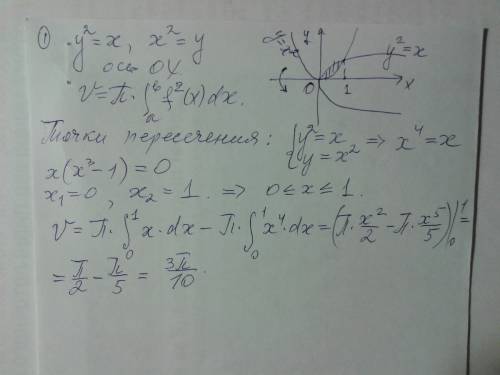 ① y²=x, x²=y
ось OX
V=π·∫ₐᵇ f²(x)dx.
y
y=x²
y²=x
0 1 x
Точки пересечения: {y²=x y=x² => x⁴=x
x(x³-1)=0
x₁=0, x₂=1. => 0≤x≤1.
V=π·∫₀¹ x·dx-π·∫₀¹ x⁴·dx=(π·x²/2-π·x⁵/5)|₀¹=
=π/2-π/5=3π/10.